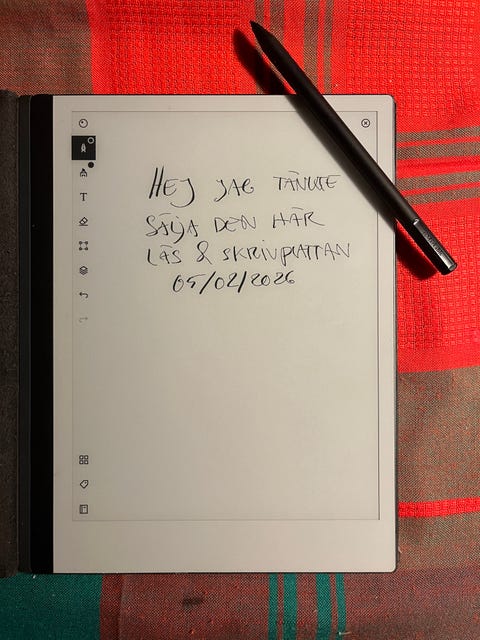 HEJ JAG TÄNKTE
SÄLJA DEN HÄR
LÄS & SKRIVPLATTAN
05/02/2026
T